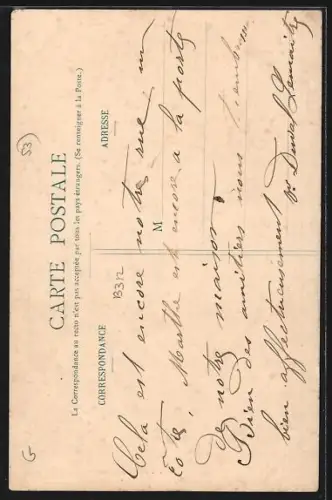 CARTE POSTALE
La Correspondance au recto n'est pas acceptée par tous les pays étrangers. (Se renseigner à la Poste.)
CORRESPONDANCE
ADRESSE
M
53
13312
G
Cela est encore notre rue un
côté, Marthe est encore a la porte
de notre maison
Bien des amitiés vous
bien affectueusement
Duval Lemaitre